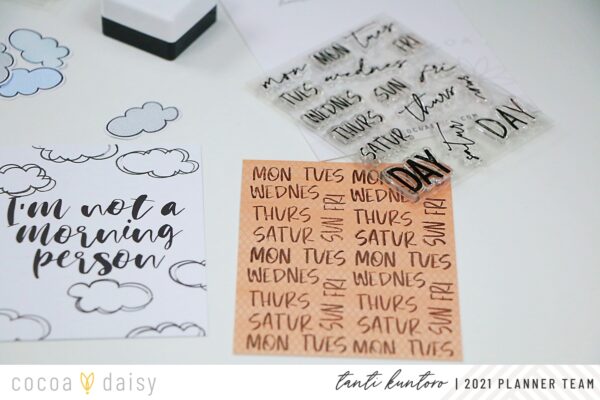 mon MON tues FRI
TUES wednes fri
WEDNES SUN
THURS thurs sun
SATUR satur DAY
DAY
I'm not a
morning
person
MON TUES MON
WEDNES WEDNES
THURS SUN FRI THURS SUN FRI
SATUR SATUR
MON TUES MON TUES
WEDNES WEDNES
THURS SUN FRI THURS SUN FRI
SATUR SATUR
MON TUES MON TUES
cocoa daisy
tanti kuntoro | 2021 PLANNER TEAM